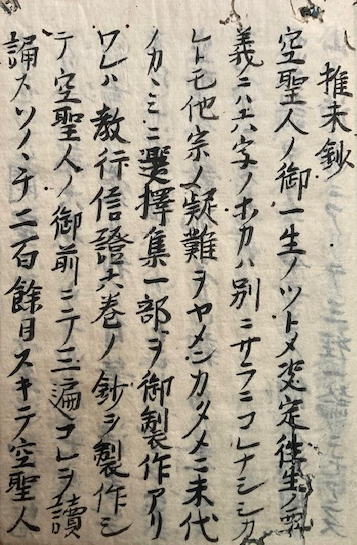 推末鈔
空聖人ノ御一生ノツトメ決定往生ノ
義ニハ六字ノホカハ別ニサラニコレナシシカ
レトモ他宗ノ疑難ヲヤメンカタメニ末代
ノカヽミニ選擇集一部ヲ御製作アリ
ワレハ教行信證六巻ノ鈔ヲ製作シ
テ空聖人ノ御前ニテ三遍コレヲ讀
誦スソノヽチ二百餘日スキテ空聖人